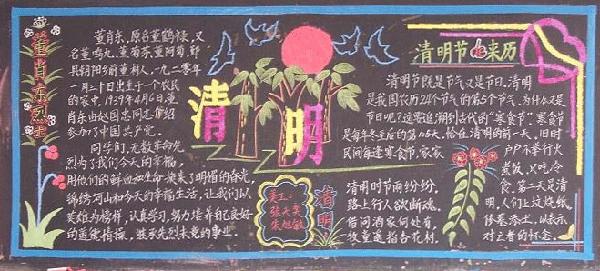 董肖东烈士
董肖东,原名董鹤候,又
名董鸣九、董菊荪、董向荀,郓
县朝阳乡前董村人,一九二零年
一月二十日出生于一个农民
的家中,1939年4月6日,董
肖东由赵国忠同志介绍
参加了中国共产党。
同学们,无数革命先
烈为了我们今天的幸福,
用他们的鲜血和生命换来了明媚的春光
锦绣河山和今天的幸福生活,让我们以
英雄为榜样,认真学习,努力培养自己良好
的道德情操,继承先烈未竟的事业
清
明
美工:
清明
清明节的来历
清明节既是节气又是节日,清明
是我国农历24个节气的第5个节气,为什么又是
节日呢?这要追溯到古代的“寒食节”。寒食节
是每年冬至后的第105天,恰在清明的前一天,旧时
民间每逢寒食节,家家
户户不举行火
煮饭,只吃冷
食,第二天是清
明,人们上坟烧纸
修墓添土,以表示
对亡者的怀念。
清明时节雨纷纷,
路上行人欲断魂。
借问酒家何处有,
牧童遥指杏花村。